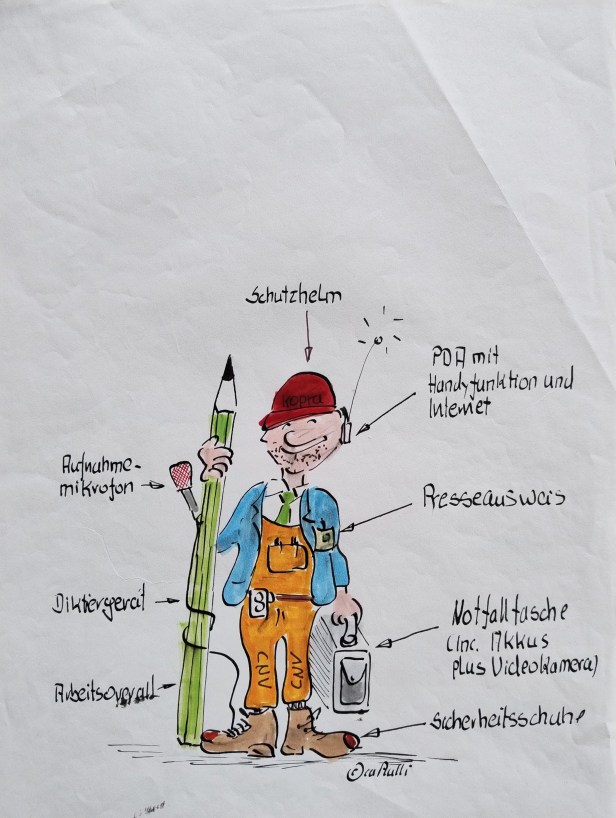 Schutzhelm
PDA mit
Handyfunktion und
Internet
kopra
Aufnahme-
mikrofon
Presseausweis
Diktiergerät
Notfalltasche
(inc. Akkus
plus Videokamera)
CNV
CNV
Arbeitsoverall
Sicherheitsschuhe
©